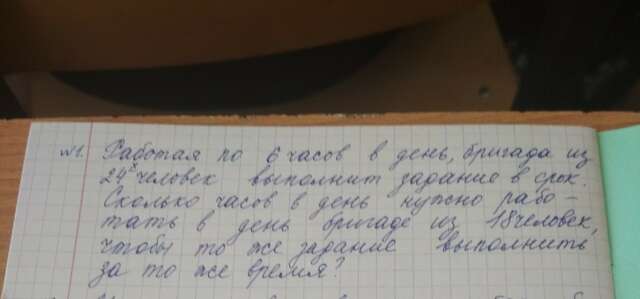 №1. Работая по 6 часов в день, бригада из
24х человек выполнит задание в срок.
Сколько часов в день нужно рабо-
тать в день бригаде из 18 человек,
чтобы то же задание выполнить
за то же время?